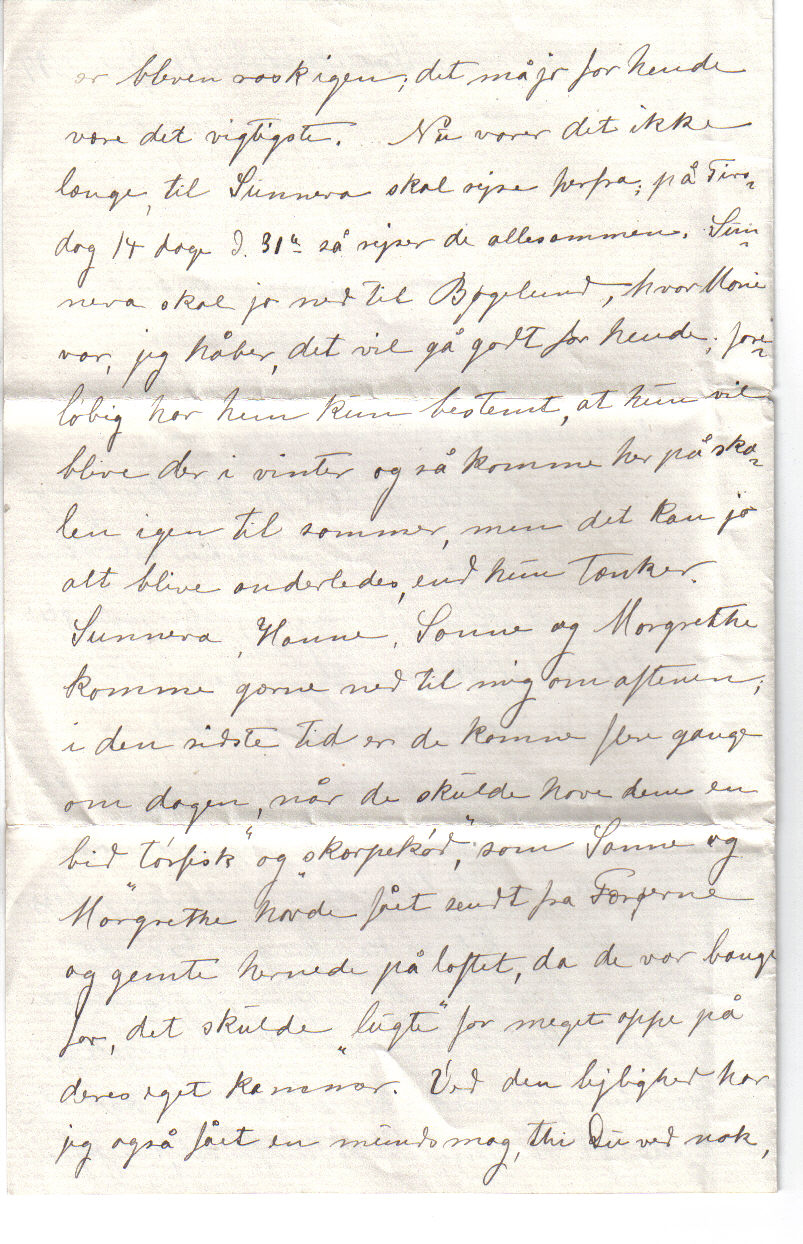 er bleven rask igen; det må jo for hende
være det vigtigste. Nu varer det ikke
længe, til Sunneva skal rejse herfra; på Tirs-
dag 14 dage d. 31te så rejser de allesammen. Sun-
neva skal jo ned til Bøgelund, hvor Marie
var, jeg håber, det vil gå godt for hende; fore-
løbig har hun kun bestemt, at hun vil
blive der i vinter og så komme her på sko-
len igen til sommer, men det kan jo
alt blive anderledes, end hun tænker.
Sunneva, Hanne, Sanne og Margrethe
komme gærne ned til mig om aftenen;
i den sidste tid er de komne flere gange
om dagen, når de skulde have dem en
bid "tórfisk" og "skærpekød", som Sanne og
Margrethe havde fået sendt fra Færøerne
og gemte hernede på loftet, da de var bange
for, det skulde "lugte" for meget oppe på
deres eget kammer. Ved den lejlighed har
jeg også fået en mundsmag, thi Du ved nok,